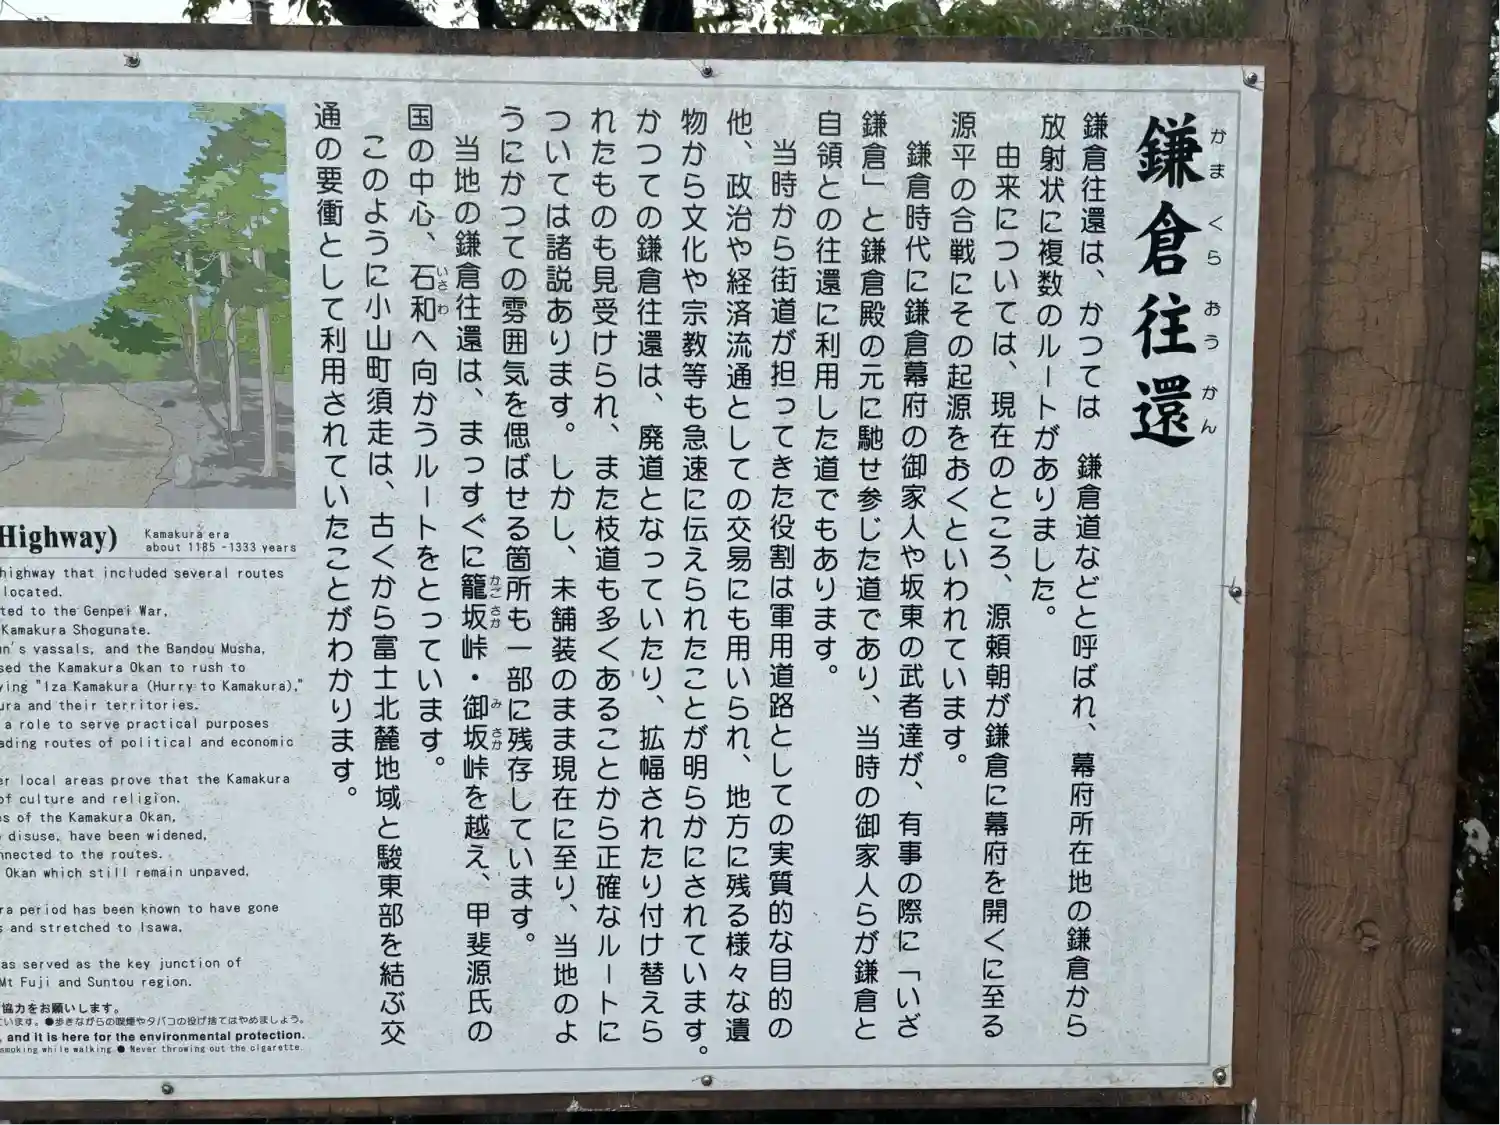 鎌倉往還
かまくらおうかん
鎌倉往還は、かつては 鎌倉道などと呼ばれ、幕府所在地の鎌倉から
放射状に複数のルートがありました。
由来については、現在のところ、源頼朝が鎌倉に幕府を開くに至る
源平の合戦にその起源をおくといわれています。
鎌倉時代に鎌倉幕府の御家人や坂東の武者達が、有事の際に「いざ
鎌倉」と鎌倉殿の元に馳せ参じた道であり、当時の御家人らが鎌倉と
自領との往還に利用した道でもあります。
当時から街道が担ってきた役割は軍用道路としての実質的な目的の
他、政治や経済流通としての交易にも用いられ、地方に残る様々な遺
物から文化や宗教等も急速に伝えられたことが明らかにされています。
かつての鎌倉往還は、廃道となっていたり、拡幅されたり付け替えら
れたものも見受けられ、また枝道も多くあることから正確なルートに
ついては諸説あります。しかし、未舗装のまま現在に至り、当地のよ
うにかつての雰囲気を偲ばせる箇所も一部に残存しています。
当地の鎌倉往還は、まっすぐに籠坂峠・御坂峠を越え、甲斐源氏の
かごさか
みさか
国の中心、石和へ向かうルートをとっています。
いさわ
このように小山町須走は、古くから富士北麓地域と駿東部を結ぶ交
通の要衝として利用されていたことがわかります。
Highway)
Kamakura era
about 1185 -1333 years
highway that included several routes
located.
ted to the Genpei War,
Kamakura Shogunate.
n's vassals, and the Bandou Musha,
sed the Kamakura Okan to rush to
ying "Iza Kamakura (Hurry to Kamakura),"
ura and their territories.
a role to serve practical purposes
ading routes of political and economic
er local areas prove that the Kamakura
of culture and religion.
s of the Kamakura Okan,
disuse, have been widened,
nnected to the routes.
Okan which still remain unpaved,
ra period has been known to have gone
s and stretched to Isawa,
as served as the key junction of
Mt Fuji and Suntou region.
協力をお願いします。
ています。●歩きながらの喫煙やタバコの投げ捨てはやめましょう。
, and it is here for the environmental protection.
smoking while walking.● Never throwing out the cigarette.